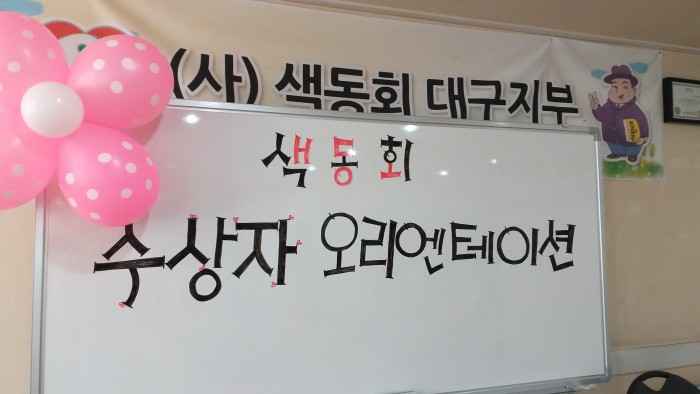 (사) 색동회 대구지부
색동회
수상자 오리엔테이션